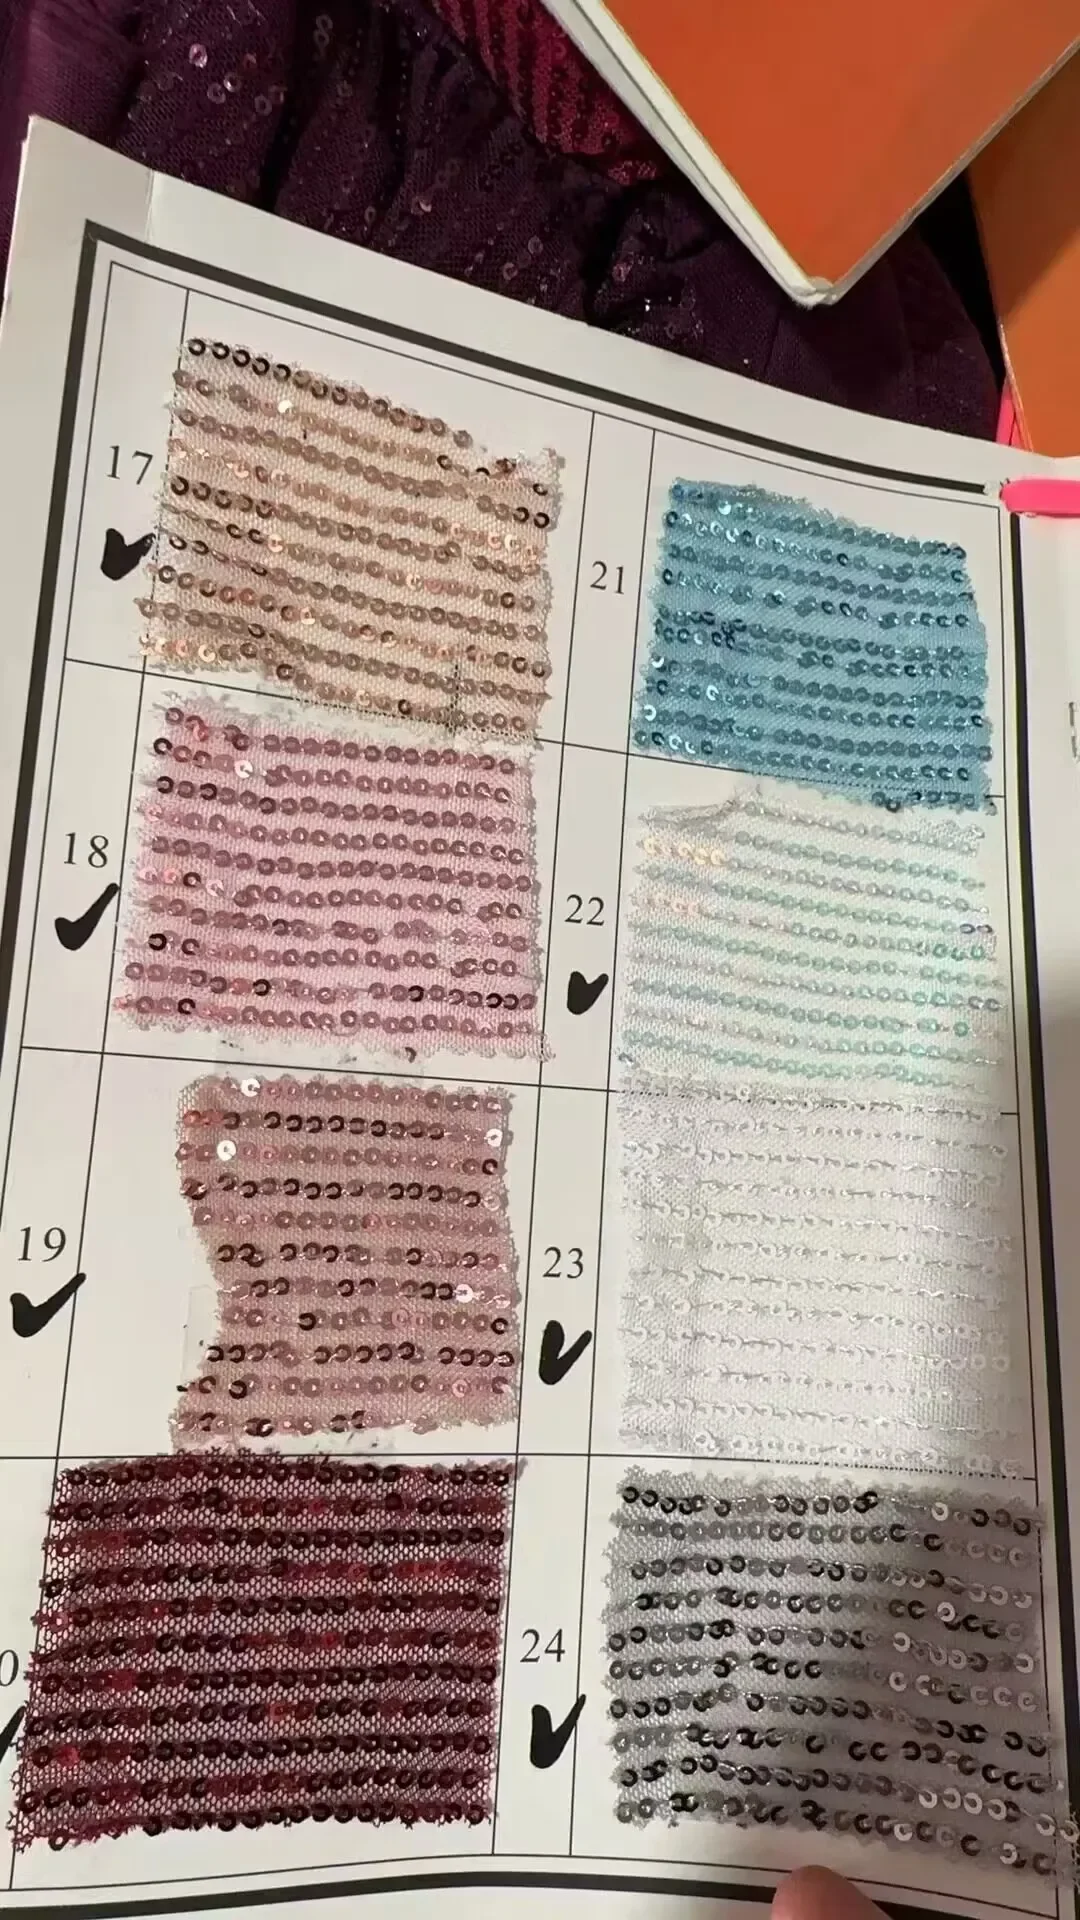 17
18
19
0
21
22
23
24